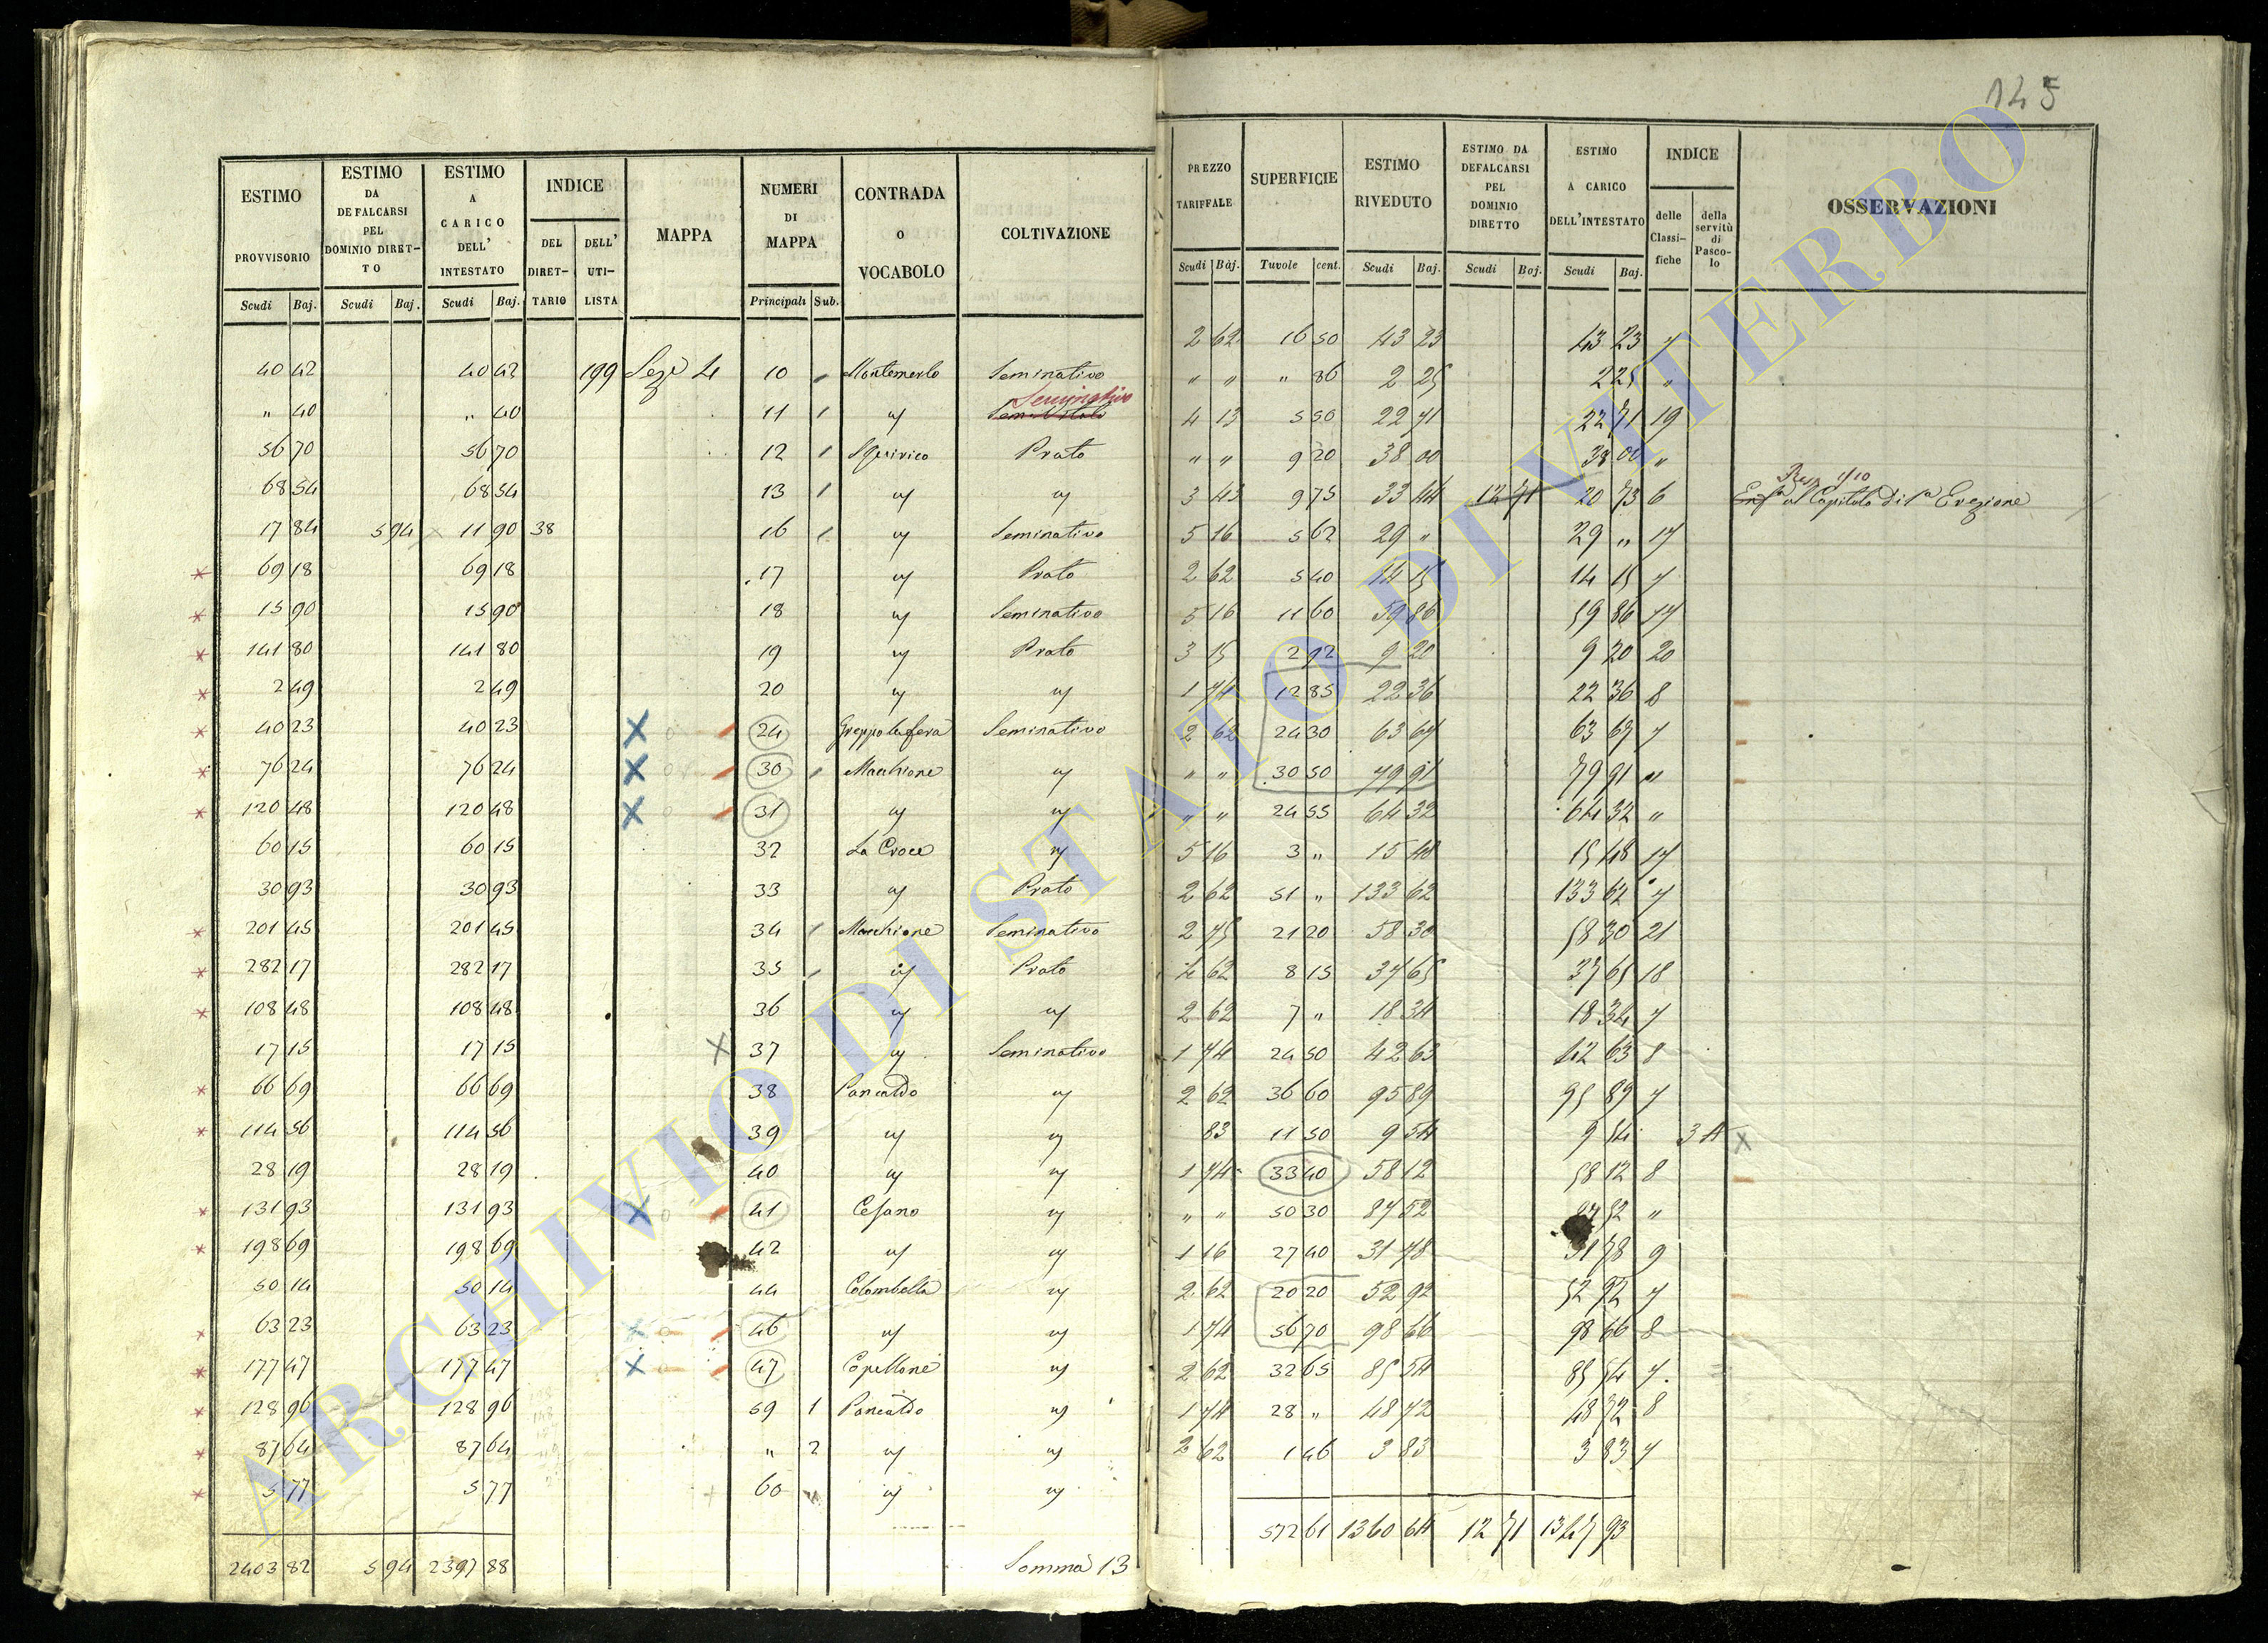 145
ESTIMO PROVVISORIO Scudi Baj.
ESTIMO DA DEFALCARSI PEL DOMINIO DIRETTO Scudi Baj.
ESTIMO A CARICO DELL' INTESTATO Scudi Baj.
INDICE DEL DIRETTARIO DELL' UTILISTA
MAPPA
NUMERI DI MAPPA Principali Sub.
CONTRADA o VOCABOLO
COLTIVAZIONE
40 42 40 42 199 Seze 4 10 Montemerlo Seminativo
" 40 " 40 11 Seminativo
56 70 56 70 12 Prato
68 54 68 54 13
17 84 5 94 11 90 38 16 Seminativo
69 18 69 18 17 Prato
15 90 15 90 18 Seminativo
141 80 141 80 19 Prato
2 49 2 49 20
40 23 40 23 24 Greppolafera Seminativo
76 24 76 24 30 Macchione
120 48 120 48 31
60 15 60 15 32 La Croce
30 93 30 93 33 Prato
201 45 201 45 34 Macchione Seminativo
282 17 282 17 35 Prato
108 48 108 48 36
17 15 17 15 37 Seminativo
66 69 66 69 38 Pancaldo
114 56 114 56 39
28 19 28 19 40
131 93 131 93 41 Cesano
198 69 198 69 42
50 14 50 14 44 Colombella
63 23 63 23 46
177 47 177 47 47 Copellone
128 96 128 96 59 1 Pancaldo
87 64 87 64 " 2
5 77 5 77 60
2403 82 5 94 2397 88 Somma 13
PREZZO TARIFFALE Scudi Baj.
SUPERFICIE Tavole cent.
ESTIMO RIVEDUTO Scudi Baj.
ESTIMO DA DEFALCARSI PEL DOMINIO DIRETTO Scudi Baj.
ESTIMO A CARICO DELL'INTESTATO Scudi Baj.
INDICE delle Classifiche della servitù di Pascolo
OSSERVAZIONI
2 62 16 50 43 23 43 23 7
" " " 86 2 25 2 25 "
4 13 5 50 22 71 22 71 19
" " 9 20 38 00 38 00 "
3 43 9 75 33 44 12 71 20 73 6 al Capitolo di Sa Erezione
5 16 5 62 29 " 29 " 17
2 62 5 40 14 15 14 15 7
5 16 11 60 59 86 59 86 17
3 15 2 92 9 20 9 20 20
1 74 12 85 22 36 22 36 8
2 62 24 30 63 67 63 67 7
" " 30 50 79 91 79 91 "
" " 24 55 64 32 64 32 "
5 16 3 " 15 48 15 48 17
2 62 51 " 133 62 133 62 7
2 75 21 20 58 30 58 30 21
4 62 8 15 37 65 37 65 18
2 62 7 " 18 34 18 34 7
1 74 24 50 42 63 42 63 8
2 62 36 60 95 89 95 89 7
83 11 50 9 54 9 54 3 A
1 74 33 40 58 12 58 12 8
" " 50 30 87 52 87 52 "
1 16 27 40 31 78 31 78 9
2 62 20 20 52 92 52 92 7
1 74 56 70 98 66 98 66 8
2 62 32 65 85 54 85 54 7
1 74 28 " 48 72 48 72 8
2 62 1 46 3 83 3 83 7
572 61 1360 64 12 71 1347 93
ARCHIVIO DI STATO DI VITERBO